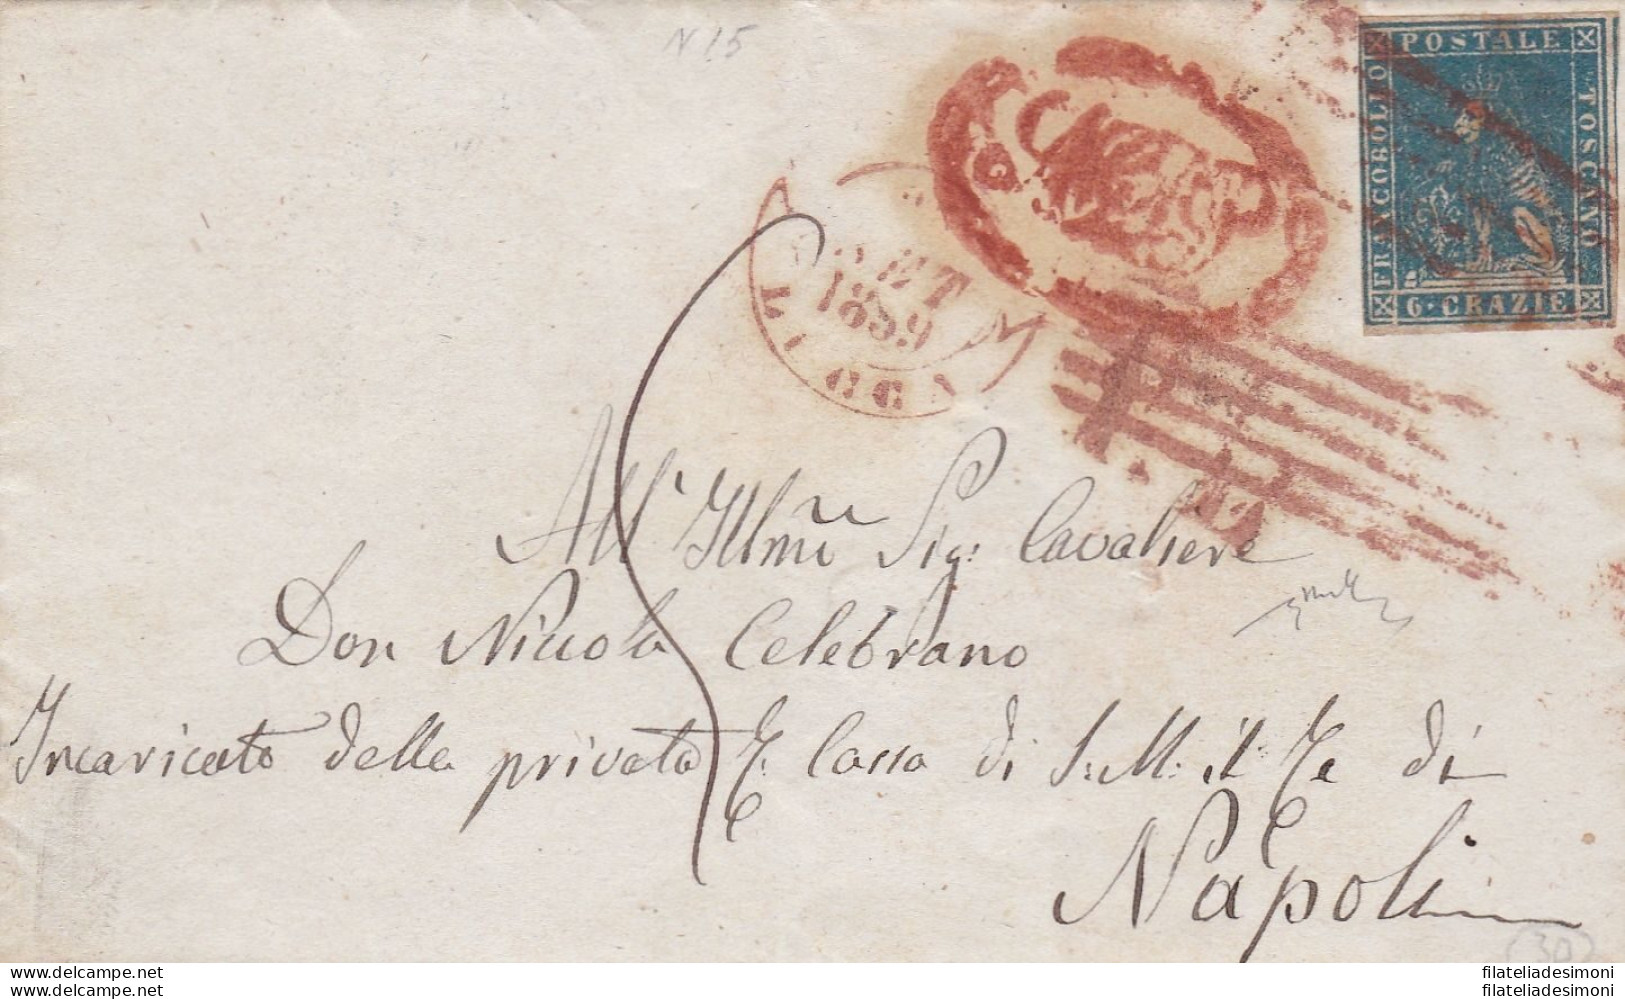 N 15
POSTALE
FRANCOBOLLO
TOSCANO
6 · CRAZIE
SET
1859
All' Illmo Sig: Cavaliere
Don Niccola Celebrano
Incaricato della privata R. Cassa di S: M: il Re di
Napoli
30
www.delcampe.net
filateliadesimoni
www.delcampe.net
filateliadesimoni